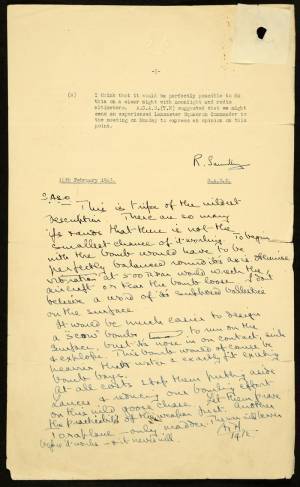 - 2 -
(8) I think that it would be perfectly possible to do
this on a clear night with moonlight and radio
altimeters. A.C.A.S.(T.R) suggested that we might
send an experienced Lancaster Squadron Commander to
the meeting on Monday to express an opinion on this
point.
R. Saundby
14th February 1943.
S.A.S.O.
This is tripe of the wildest
description. There are so many
ifs & ands that there is not the
smallest chance of its working. To begin
with the bomb would have to be
perfectly balanced round its axis otherwise
vibration at 500 RPM would wreck the
aircraft or tear the bomb loose. I don't
believe a word of its supposed ballistics
on the surface.
It would be much easier to design
a "scow" bomb to run on the
surface, burst its nose in on contact, sink
& explode. This bomb would of course be
heavier than water & exactly fit existing
bomb bays.
At all costs stop them putting aside
Lancs & reducing our bombing effort
on this wild goose chase. Let them prove
the practicability of the weapon first. Another
Toraplane – only madder. The war will be over
before it works – & it never will.
14/2.